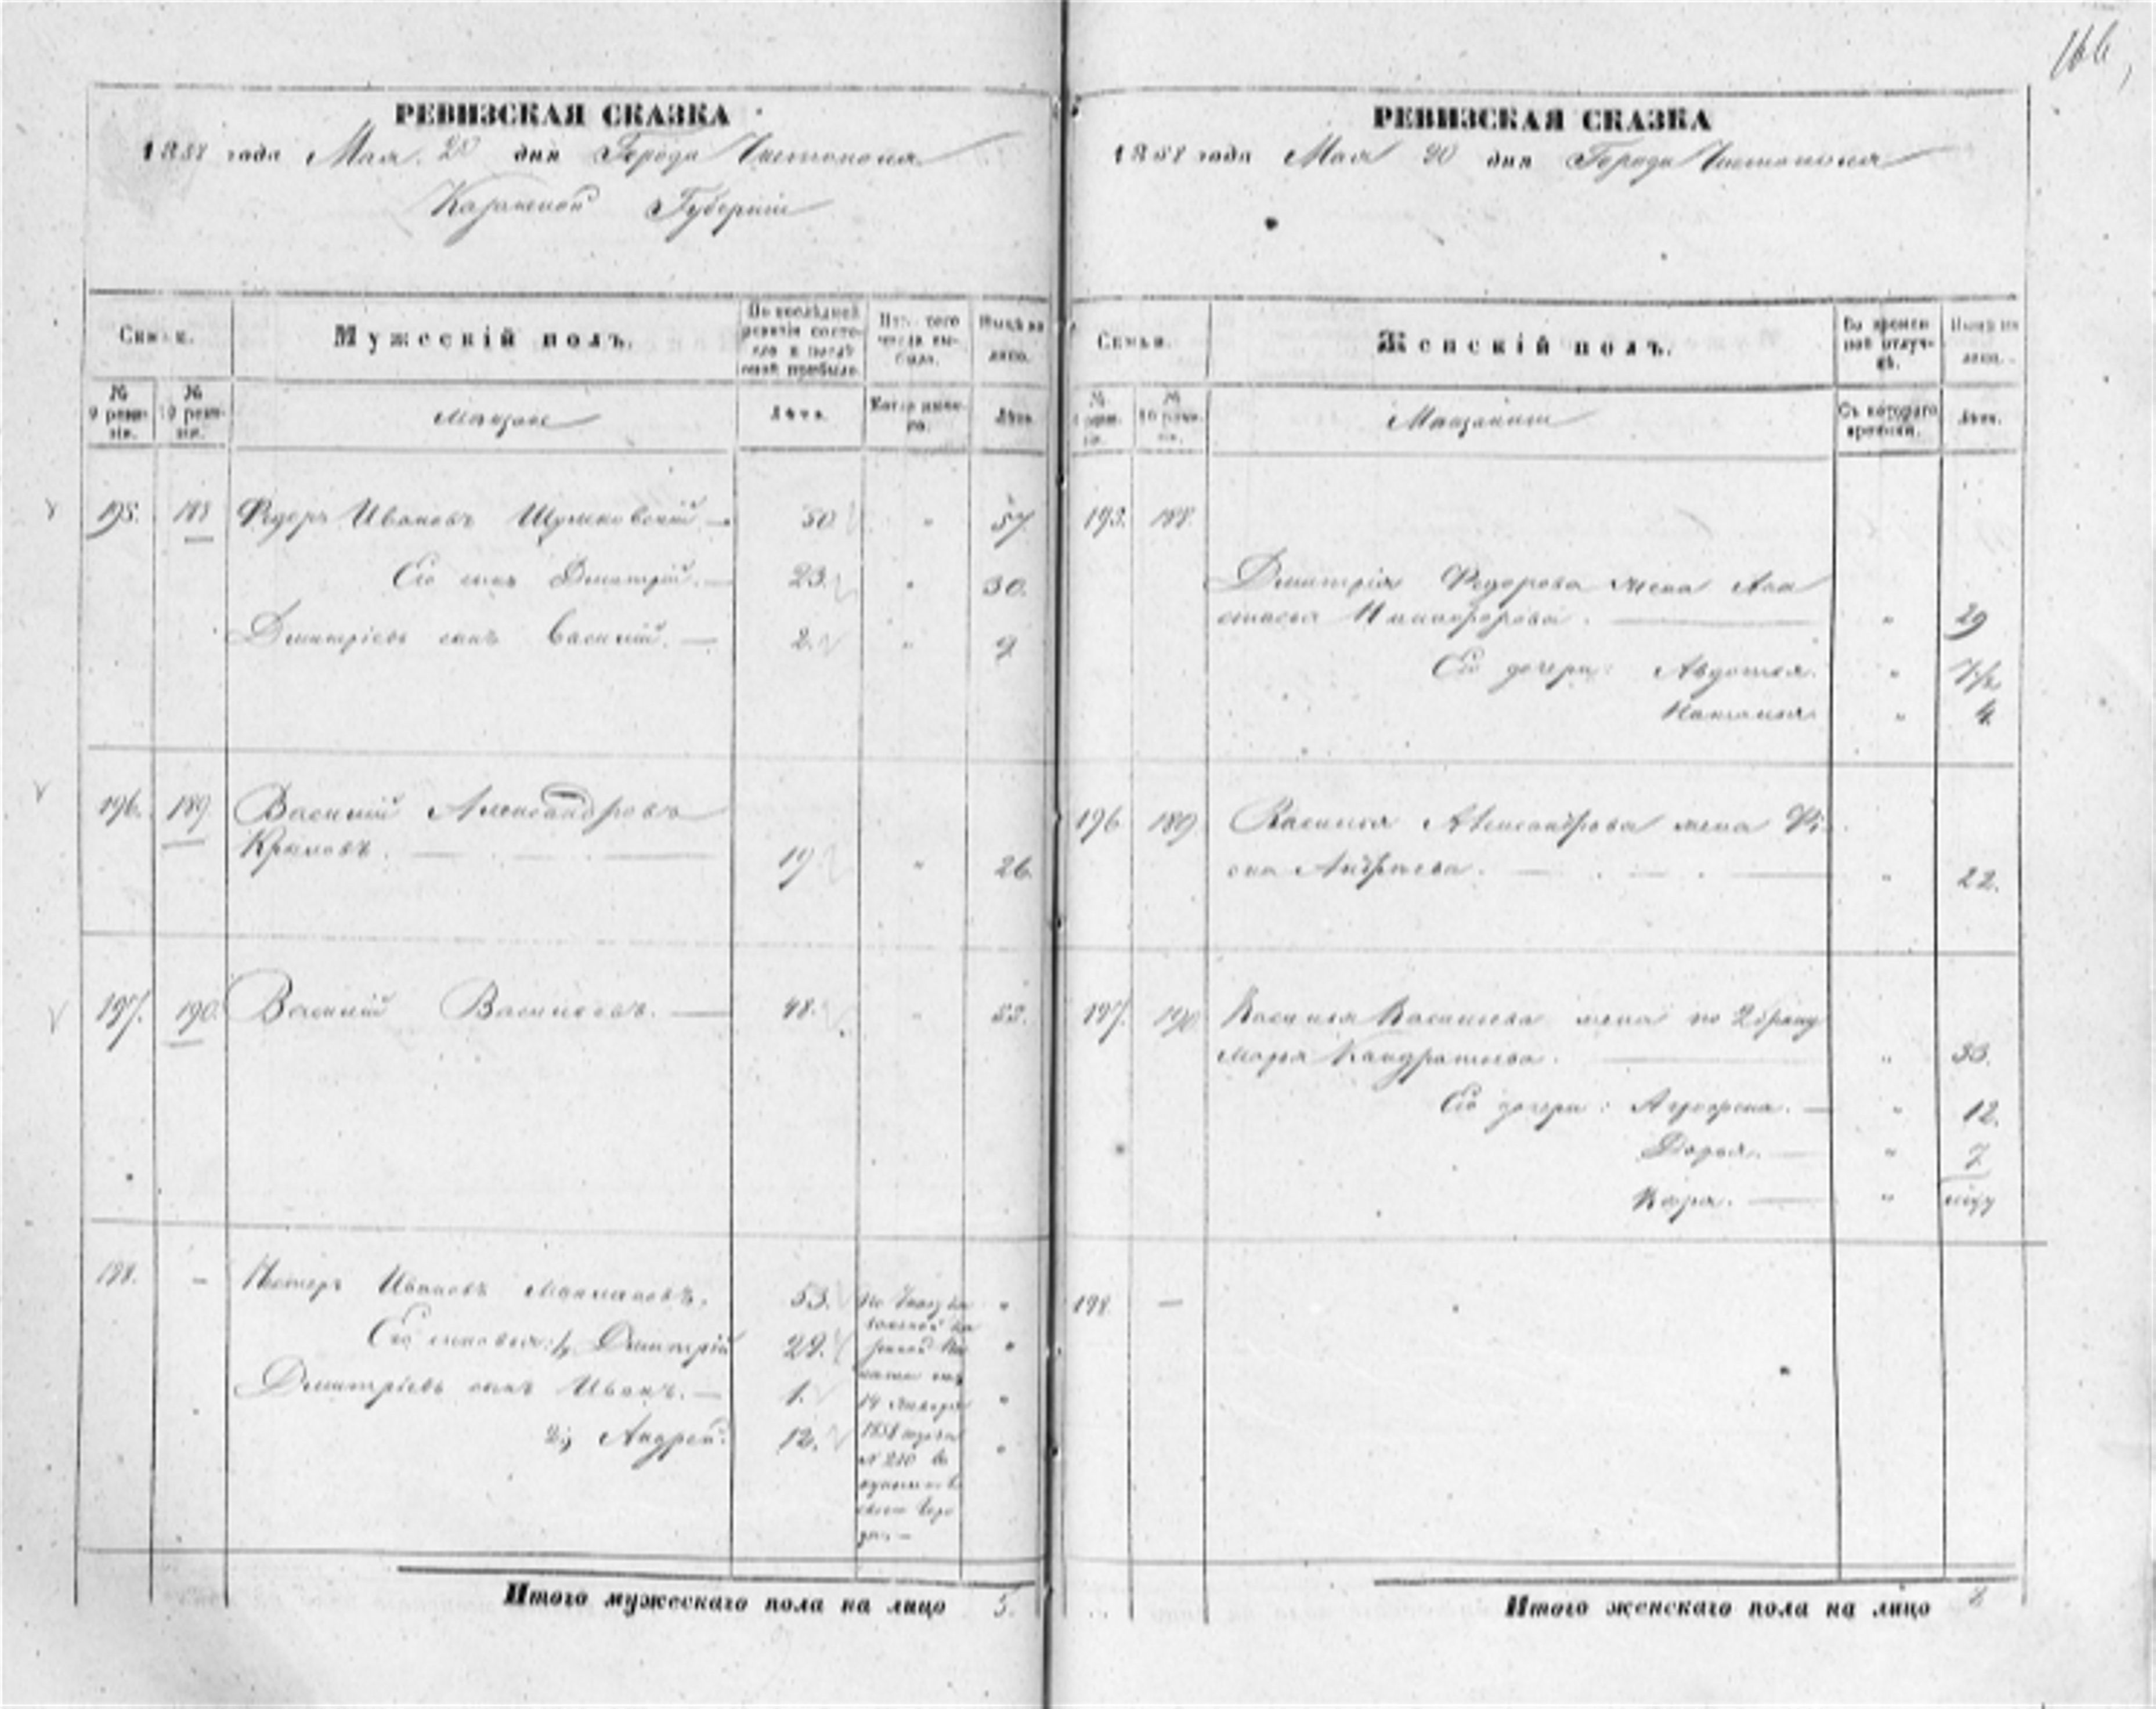 166,
РЕВИЗСКАЯ СКАЗКА
1858 года Мая 20 дня Города Чистополя
Казанской Губерніи
Семьи.
Мужескій полъ.
По послѣдней ревизіи состояло и послѣ оной прибыло.
Изъ того числа выбыло.
Нынѣ на лицо.
№ 9 ревизіи.
№ 10 ревизіи.
Мещане
Лѣта.
Когда именно.
Лѣта.
195. 188 Федоръ Ивановъ — 50 " 57
Его сынъ Дмитрій. — 23. " 30.
Дмитріевъ сынъ Василій. — 2. " 9
196. 189. Василій Александровъ
Крыловъ. — 19 " 26.
197. 190. Василій Васильевъ. — 48. "
198. — Петръ Ивановъ 53. "
Его сыновья: 1, Дмитрій 22. "
Дмитріевъ сынъ Иванъ. — 1. "
2, Андрей. 12. "
14 Января
№ 210
Итого мужескаго пола на лицо 5.
РЕВИЗСКАЯ СКАЗКА
1858 года Мая 20 дня Города Чистополя
Семьи.
Женскій полъ.
Во временной отлучкѣ.
Нынѣ на лицо.
№ 9 ревизіи.
№ 10 ревизіи.
Мещанки
Съ котораго времени.
Лѣта.
193. 188.
Дмитрія Федорова жена Ана
стасья Никифорова. — " 29
Его дочери: Авдотья. "
Наталья. " 4
196 189 Василья Александрова жена
Андреева. — " 22.
197. 190 Василья Васильева жена по 2 браку
Марья Кандратьева. — " 33.
Его дочери: Аграфена. — " 12.
Дарья. — " 7
— "
198 —
Итого женскаго пола на лицо 8